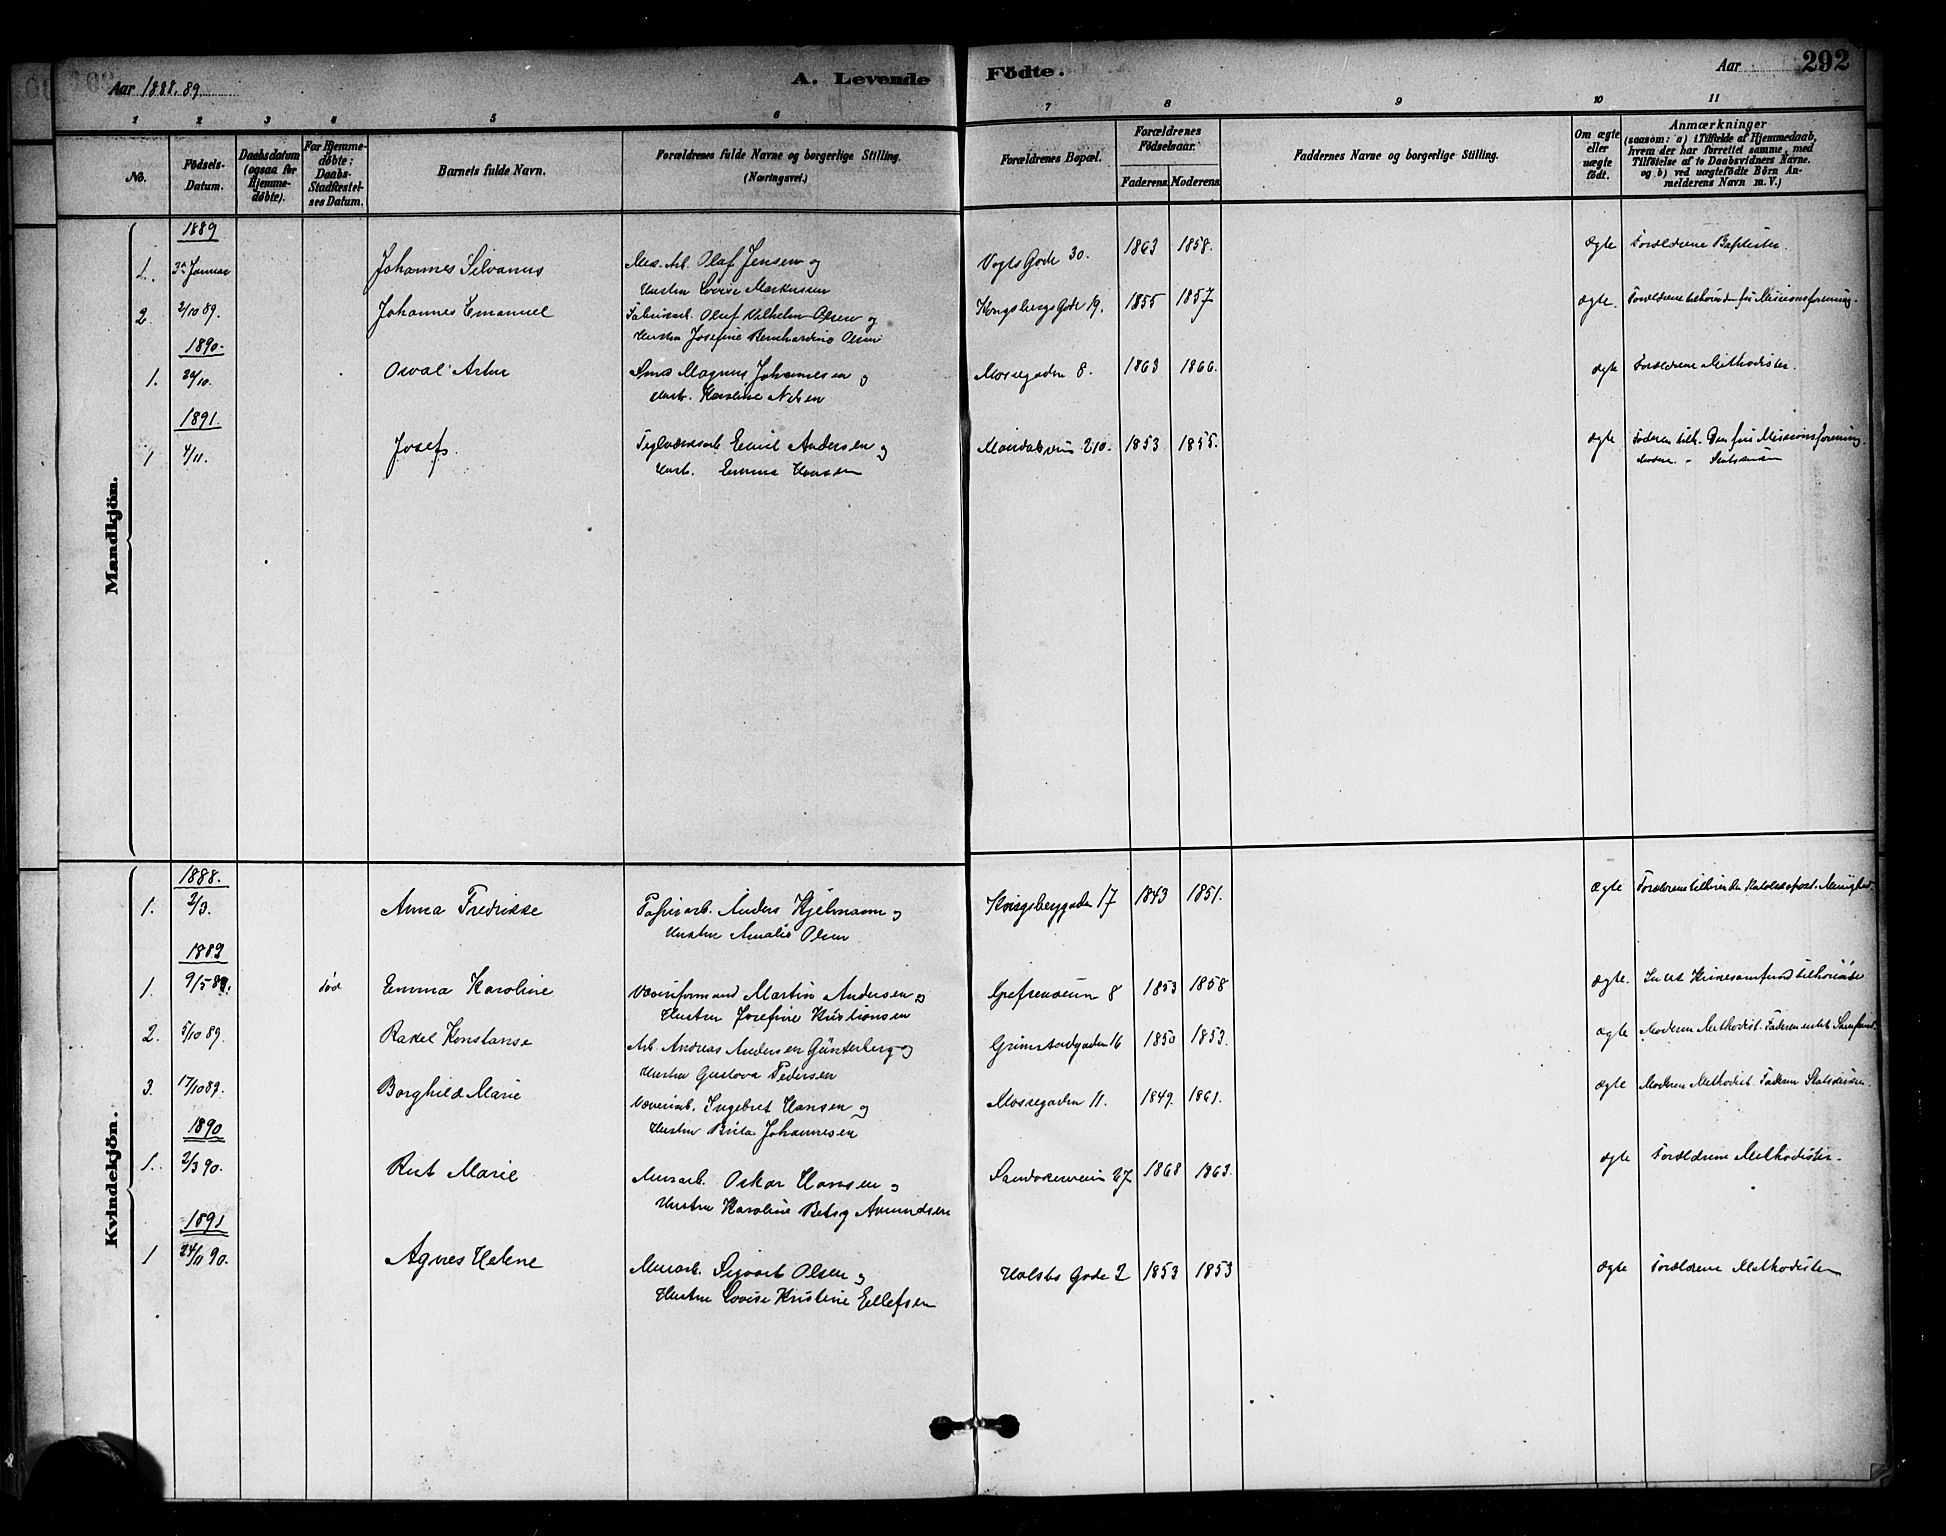 Aar 1888.89
A. Levende
Födte.
Aar
292
1 2 3 4 5 6 7 8 9 10 11
No.
Födsels-Datum.
Daabsdatum (ogsaa for Hjemme-døbte).
For Hjemme-døbte; Daabs-Stadfæstel-ses Datum.
Barnets fulde Navn.
Forældrenes fulde Navne og borgerlige Stilling.
(Næringsvei.)
Forældrenes Bopæl.
Forældrenes Födselsaar.
Faderens. Moderens.
Faddernes Navne og borgerlige Stilling.
Om ægte eller uægte født.
Anmærkninger
(saasom: a) i Tilfælde af Hjemmedaab,
hvem der har forrettet samme, med
Tilføielse af to Daabsvidners Navne.
og b) ved uægtefödte Börn An-
melderens Navn m. V.)
Mandkjön.
1889
Johannes Silvanus Olaf Jensen og Vogts Gade 30. 1863 1858. ægte Forældrene Baptister.
Hustru Lovise Markussen
2. 2/10 89. Johannes Emanuel Fabrikarb. Oluf Vilhelm Olsen og Kongsbergs Gade 19. 1855 1857 ægte.
Hustru Josefine Bernhardine Olsen
1890.
1. Osval Artur Magnus Johannesen og Mossegaden 8. 1863 1866. ægte Forældrene Methodister.
Hust. Karoline Nelsen
1891.
1 4/11. Josef. Teglværksarb Emil Andersen og 210. 1853 1855. ægte Faderen tilh. Den fri Missionsforening.
Hust. Emma Hansen
Kvindekjön.
1888.
1. 2/3. Anna Fredrikke Anders Hjelmann og Kongsberggaden 17 1843 1851. ægte
Hustru Amalie Olsen
1889
1. 9/5 89. død Emma Karoline Væveriformand Martin Andersen og Grefsenveien 8 1853 1858 ægte.
Hustru Josefine Kristiansen
2. 5/10 89. Rakel Konstanse Arb. Andreas Andersen Günterberg og Grimstadgaden 16 1850 1853. ægte Moderen Methodist.
Hustru Gustava Pedersen
3. 17/10 89. Borghild Marie Væveriarb. Ingebret Hansen og Mossegaden 11. 1849. 1861. ægte Moderen Methodist. Faderen
Hustru Johannesen
1890
1. 2/3 90. Rut Marie Murarb. Oskar Hansen og Sandakerveien 27 1868 1863. ægte Forældrene Methodister.
Hustru Karoline Betsy Amundsen
1891
1 24/11 90. Agnes Helene Murarb. Sigvart Olsen og Holsts Gade 2 1853 1853 ægte Forældrene Methodister
Hustru Lovise Kristine Ellefsen